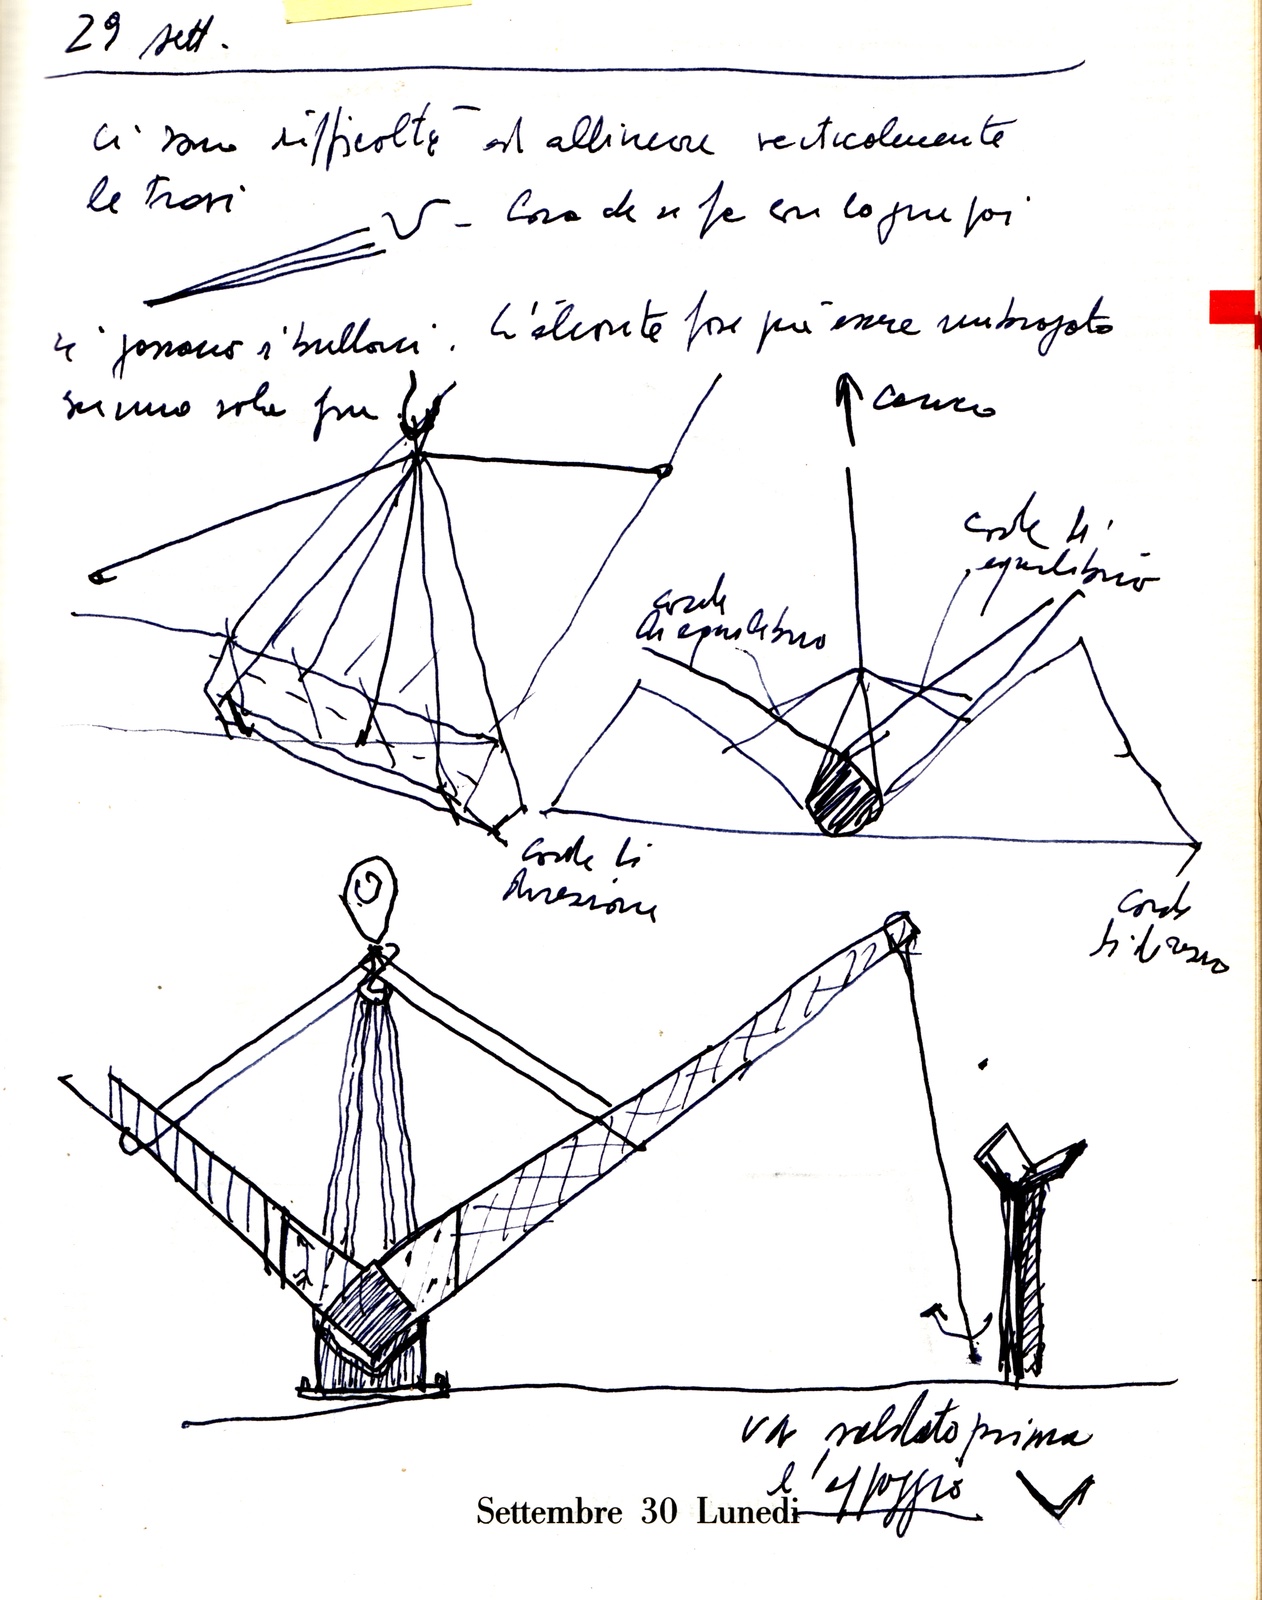 29 sett.
Ci sono difficoltà ad allineare verticalmente
le travi
- Cosa che si fa con lo gru poi
si possono i bulloni. L'elemento fore può essere imbragato
su uno solo fun
carico
corde di
equilibrio
corde
di equilibrio
corde di
direzione
corde
di direzio
va saldato prima
l'appoggio
Settembre 30 Lunedi